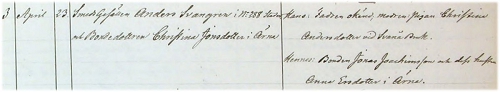 3 April 23. Smedsgesällen Anders Svangren i No 258 Staden
och Bondedottren Christina Jonsdotter i Årna
Hans: Fadren okänd, modren Pigan Christina
Andersdotter vid Svanå Bruk.
Hennes: Bonden Jonas Joachimsson och dess hustru
Anna Ersdotter i Årna.